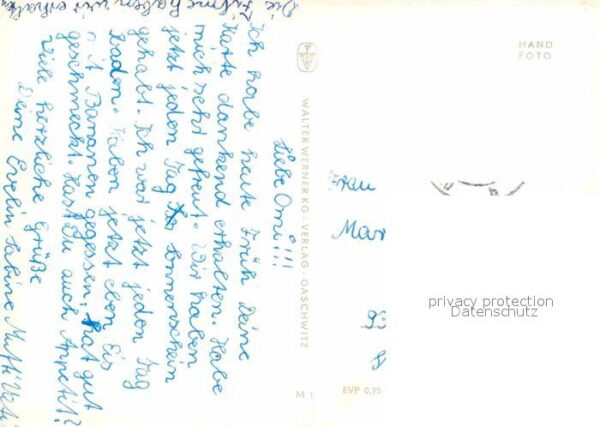 Die Filme haben wir erhalten
Liebe Omi!!!
Ich habe heute Früh Deine
Karte dankend erhalten. Habe
mich sehr gefreut. Wir haben
jetzt jeden Tag Sonnenschein
gehabt. Ich war jetzt jeden Tag
Baden. Haben jetzt eben Eis
mit Bananen gegessen, hat gut
geschmeckt. Hast Du auch Appetit?
Viele herzliche Grüße
Deine Evelin Sabine Mutti Vati
WALTER WERNER KG · VERLAG · GASCHWITZ
HAND
FOTO
Frau
Mar
93
privacy protection
Datenschutz
M 1
EVP 0,25